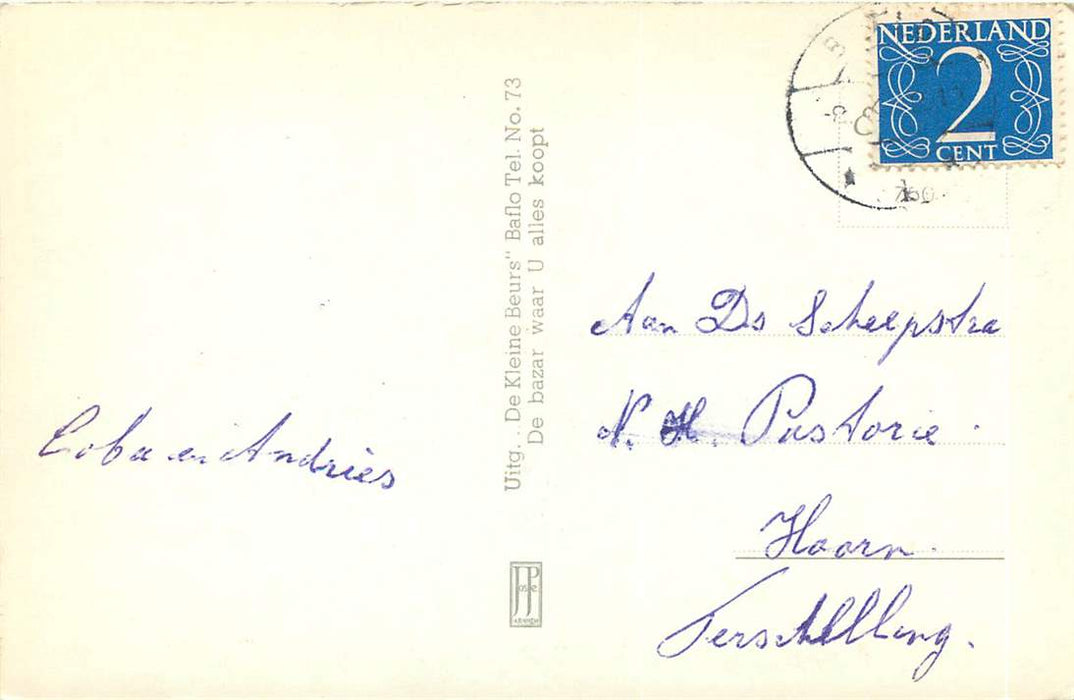 NEDERLAND
2
CENT
Uitg. „De Kleine Beurs" Baflo Tel. No. 73
De bazar waar U alles koopt
Coba en Andries
Aan Ds Scheepstra
N. H. Pastorie
Hoorn.
Terschelling.
JP